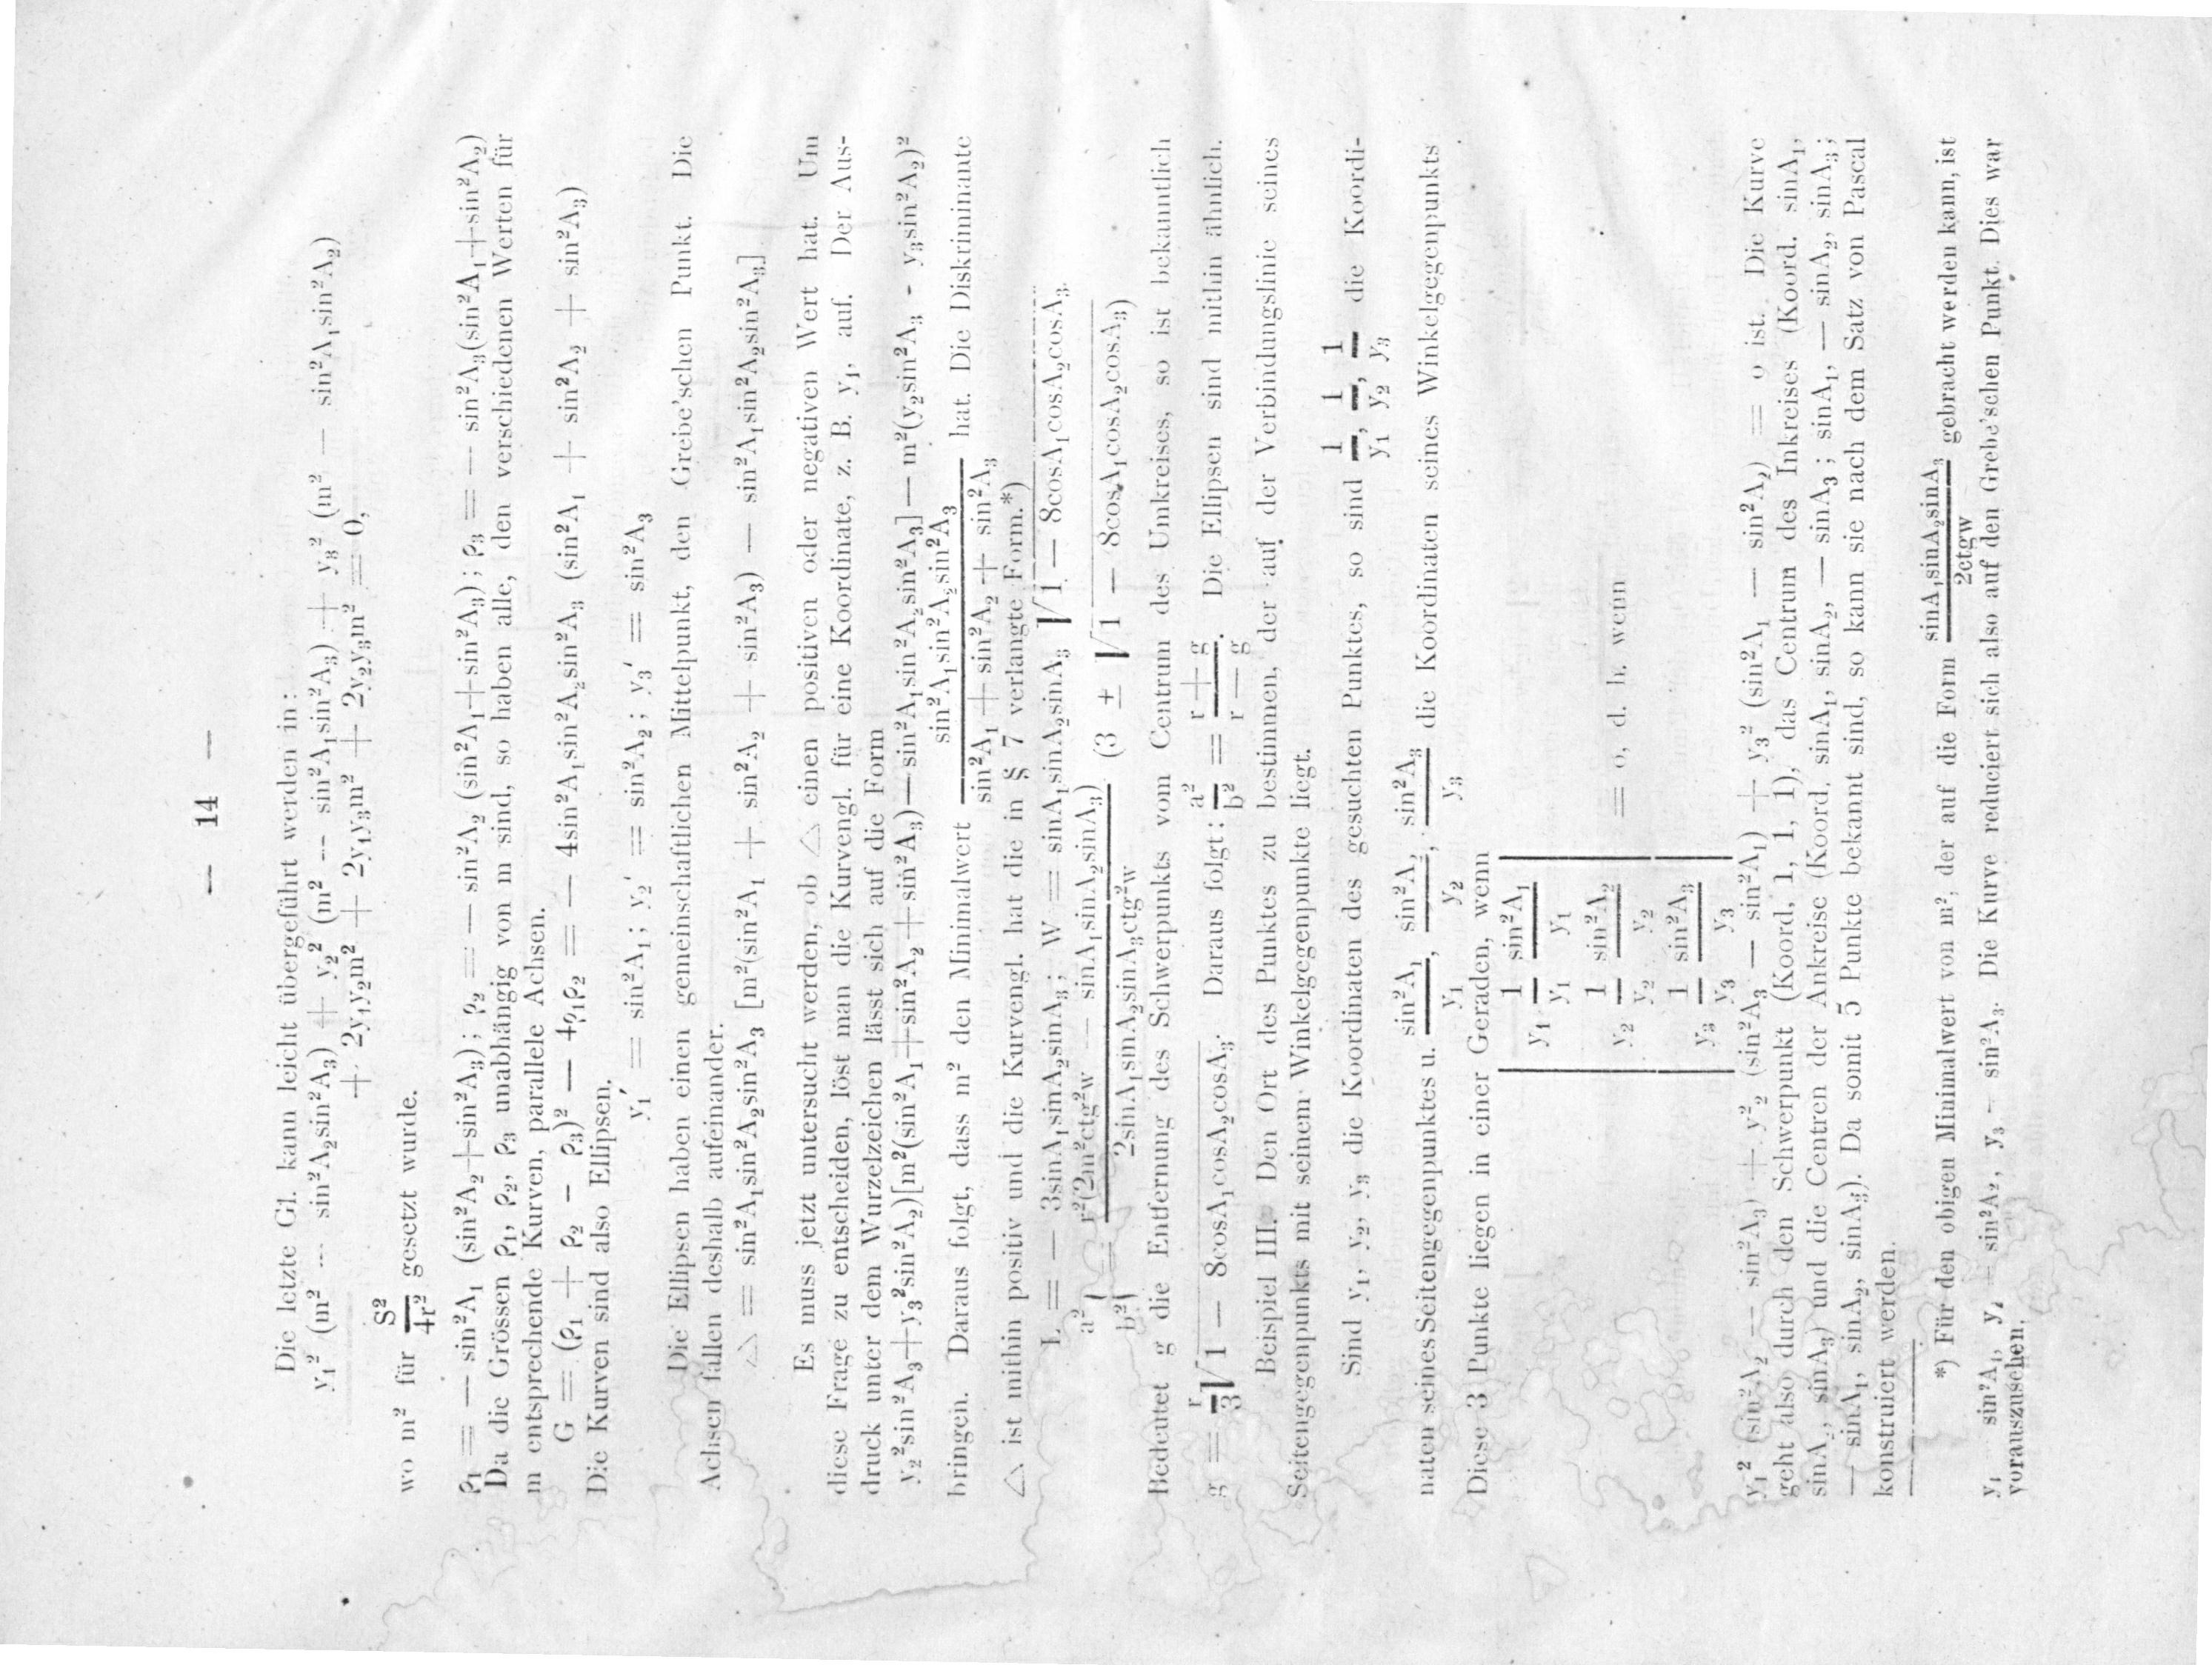 — 14 —
Die letzte Gl. kann leicht übergeführt werden in:
y₁² (m² — sin²A₂sin²A₃) + y₂² (m² — sin²A₁sin²A₃) + y₃² (m² — sin²A₁sin²A₂)
+ 2y₁y₂m² + 2y₁y₃m² + 2y₂y₃m² = 0,
wo m² für S²/4r² gesetzt wurde.
ρ₁ = — sin²A₁ (sin²A₂+sin²A₃); ρ₂ = — sin²A₂ (sin²A₁+sin²A₃); ρ₃ = — sin²A₃(sin²A₁+sin²A₂)
Da die Grössen ρ₁, ρ₂, ρ₃ unabhängig von m sind, so haben alle, den verschiedenen Werten für
m entsprechende Kurven, parallele Achsen.
G = (ρ₁ + ρ₂ — ρ₃)² — 4ρ₁ρ₂ = — 4sin²A₁sin²A₂sin²A₃ (sin²A₁ + sin²A₂ + sin²A₃)
Die Kurven sind also Ellipsen.
y₁′ = sin²A₁; y₂′ = sin²A₂; y₃′ = sin²A₃
Die Ellipsen haben einen gemeinschaftlichen Mittelpunkt, den Grebe'schen Punkt. Die
Achsen fallen deshalb aufeinander.
△ = sin²A₁sin²A₂sin²A₃ [m²(sin²A₁ + sin²A₂ + sin²A₃) — sin²A₁sin²A₂sin²A₃]
Es muss jetzt untersucht werden, ob △ einen positiven oder negativen Wert hat. Um
diese Frage zu entscheiden, löst man die Kurvengl. für eine Koordinate, z. B. y₁, auf. Der Aus-
druck unter dem Wurzelzeichen lässt sich auf die Form
y₂²sin²A₃+y₃²sin²A₂)[m²(sin²A₁+sin²A₂+sin²A₃)—sin²A₁sin²A₂sin²A₃]—m²(y₂sin²A₃ - y₃sin²A₂)²
bringen. Daraus folgt, dass m² den Minimalwert sin²A₁sin²A₂sin²A₃/sin²A₁ + sin²A₂ + sin²A₃ hat. Die Diskriminante
△ ist mithin positiv und die Kurvengl. hat die in § 7 verlangte Form.*)
L = — 3sinA₁sinA₂sinA₃; W = sinA₁sinA₂sinA₃ √1 — 8cosA₁cosA₂cosA₃.
a²/b² } = r²(2m²ctg²w — sinA₁sinA₂sinA₃)/2sinA₁sinA₂sinA₃ctg²w (3 ± √1 — 8cosA₁cosA₂cosA₃)
Bedeutet g die Entfernung des Schwerpunkts vom Centrum des Umkreises, so ist bekanntlich
g = r/3 √1 — 8cosA₁cosA₂cosA₃. Daraus folgt: a²/b² = r + g/r — g. Die Ellipsen sind mithin ähnlich.
Beispiel III. Den Ort des Punktes zu bestimmen, der auf der Verbindungslinie seines
Seitengegenpunkts mit seinem Winkelgegenpunkte liegt.
Sind y₁, y₂, y₃ die Koordinaten des gesuchten Punktes, so sind 1/y₁, 1/y₂, 1/y₃ die Koordi-
naten seines Seitengegenpunktes u. sin²A₁/y₁, sin²A₂/y₂, sin²A₃/y₃ die Koordinaten seines Winkelgegenpunkts
Diese 3 Punkte liegen in einer Geraden, wenn
| y₁ 1/y₁ sin²A₁/y₁ |
| y₂ 1/y₂ sin²A₂/y₂ | = 0, d. h. wenn
| y₃ 1/y₃ sin²A₃/y₃ |
y₁² (sin²A₂ — sin²A₃) + y²₂ (sin²A₃ — sin²A₁) + y₃² (sin²A₁ — sin²A₂) = 0 ist. Die Kurve
geht also durch den Schwerpunkt (Koord, 1, 1, 1), das Centrum des Inkreises (Koord. sinA₁,
sinA₂, sinA₃) und die Centren der Ankreise (Koord, sinA₁, sinA₂, — sinA₃; sinA₁, — sinA₂, sinA₃;
— sinA₁, sinA₂, sinA₃). Da somit 5 Punkte bekannt sind, so kann sie nach dem Satz von Pascal
konstruiert werden.
*) Für den obigen Minimalwert von m², der auf die Form sinA₁sinA₂sinA₃/2ctgw gebracht werden kann, ist
y₁ — sin²A₁, y₂ — sin²A₂, y₃ — sin²A₃. Die Kurve reduciert sich also auf den Grebe'schen Punkt. Dies war
vorauszusehen.